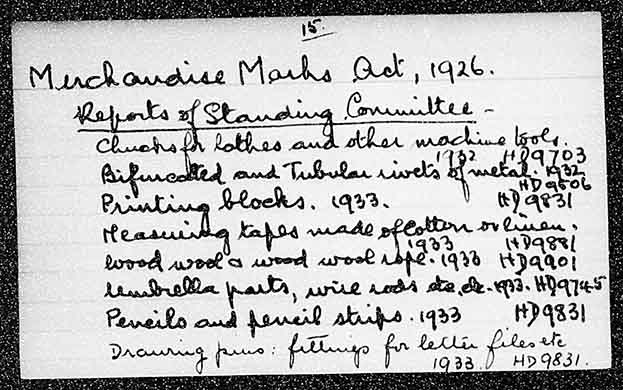 15.
Merchandise Marks Act, 1926.
Reports of Standing Committee -
Chucks for lathes and other machine tools.
1932 HD9703
Bifurcated and Tubular rivets of metal. 1932
HD9506
Printing blocks. 1933. HD9831
Measuring tapes made of cotton or linen.
1933 HD9881
Wood wool & wood wool rope. 1933 HD9901
Umbrella parts, wire rods etc, etc. 1933. HD9745
Pencils and pencil strips. 1933 HD9831
Drawing pins: fittings for letter files etc
1933. HD9831.